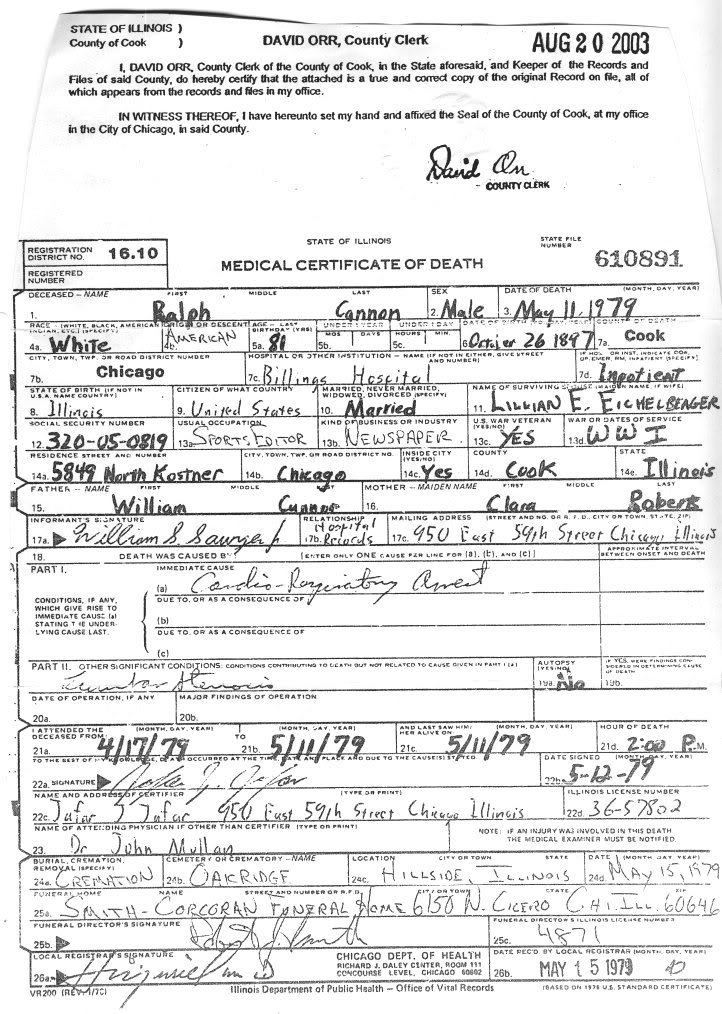 STATE OF ILLINOIS )
County of Cook )
DAVID ORR, County Clerk
AUG 20 2003
I, DAVID ORR, County Clerk of the County of Cook, in the State aforesaid, and Keeper of the Records and
Files of said County, do hereby certify that the attached is a true and correct copy of the original Record on file, all of
which appears from the records and files in my office.
IN WITNESS THEREOF, I have hereunto set my hand and affixed the Seal of the County of Cook, at my office
in the City of Chicago, in said County.
David Orr
COUNTY CLERK
REGISTRATION DISTRICT NO. 16.10
REGISTERED NUMBER
STATE OF ILLINOIS
MEDICAL CERTIFICATE OF DEATH
STATE FILE NUMBER 610891
DECEASED – NAME FIRST MIDDLE LAST SEX DATE OF DEATH (MONTH, DAY, YEAR)
1. Ralph Cannon 2. Male 3. May 11, 1979
RACE – (WHITE, BLACK, AMERICAN INDIAN, ETC.) (SPECIFY) ORIGIN OR DESCENT AGE – LAST BIRTHDAY (YRS) UNDER 1 YEAR UNDER 1 DAY DATE OF BIRTH (MO., DAY, YEAR) COUNTY OF DEATH
MOS. DAYS HOURS MIN.
4a. White 4b. AMERICAN 5a. 81 5b. 5c. 6. October 26 1897 7a. Cook
CITY, TOWN, TWP. OR ROAD DISTRICT NUMBER HOSPITAL OR OTHER INSTITUTION – NAME (IF NOT IN EITHER, GIVE STREET AND NUMBER) IF HOSP. OR INST. INDICATE DOA, OP. EMER. RM, INPATIENT (SPECIFY)
7b. Chicago 7c. Billings Hospital 7d. Inpatient
STATE OF BIRTH (IF NOT IN U.S.A. NAME COUNTRY) CITIZEN OF WHAT COUNTRY MARRIED, NEVER MARRIED, WIDOWED, DIVORCED (SPECIFY) NAME OF SURVIVING SPOUSE (MAIDEN NAME, IF WIFE)
8. Illinois 9. United States 10. Married 11. LILLIAN E. EICHELBERGER
SOCIAL SECURITY NUMBER USUAL OCCUPATION KIND OF BUSINESS OR INDUSTRY U.S. WAR VETERAN (YES/NO) WAR OR DATES OF SERVICE
12. 320-05-0819 13a. SPORTS EDITOR 13b. NEWSPAPER 13c. YES 13d. WW I
RESIDENCE STREET AND NUMBER CITY, TOWN, TWP, OR ROAD DISTRICT NO. INSIDE CITY (YES/NO) COUNTY STATE
14a. 5849 North Kostner 14b. Chicago 14c. Yes 14d. Cook 14e. Illinois
FATHER – NAME FIRST MIDDLE LAST MOTHER – MAIDEN NAME FIRST MIDDLE LAST
15. William Cannon 16. Clara Roberts
INFORMANT'S SIGNATURE RELATIONSHIP MAILING ADDRESS (STREET AND NO. OR R.F.D. CITY OR TOWN, STATE, ZIP)
17a. William S. Sawyer Jr 17b. Hospital Records 17c. 950 East 59th Street Chicago, Illinois
18. DEATH WAS CAUSED BY: (ENTER ONLY ONE CAUSE PER LINE FOR (a), (b), AND (c)) APPROXIMATE INTERVAL BETWEEN ONSET AND DEATH
PART I. IMMEDIATE CAUSE
(a) Cardio-Respiratory Arrest
CONDITIONS, IF ANY, WHICH GIVE RISE TO IMMEDIATE CAUSE (a) STATING THE UNDERLYING CAUSE LAST.
DUE TO, OR AS A CONSEQUENCE OF
(b)
DUE TO, OR AS A CONSEQUENCE OF
(c)
PART II. OTHER SIGNIFICANT CONDITIONS: CONDITIONS CONTRIBUTING TO DEATH BUT NOT RELATED TO CAUSE GIVEN IN PART I (a) AUTOPSY (YES/NO) IF YES, WERE FINDINGS CONSIDERED IN DETERMINING CAUSE OF DEATH
Stenosis 19a. No 19b.
DATE OF OPERATION, IF ANY MAJOR FINDINGS OF OPERATION
20a. 20b.
I ATTENDED THE DECEASED FROM (MONTH, DAY, YEAR) TO (MONTH, DAY, YEAR) AND LAST SAW HIM/HER ALIVE ON (MONTH, DAY, YEAR) HOUR OF DEATH
21a. 4/17/79 21b. 5/11/79 21c. 5/11/79 21d. 2:00 P.M.
TO THE BEST OF MY KNOWLEDGE, DEATH OCCURRED AT THE TIME, DATE AND PLACE AND DUE TO THE CAUSE(S) STATED DATE SIGNED (MONTH, DAY, YEAR)
22a. SIGNATURE 22b. 5-12-79
NAME AND ADDRESS OF CERTIFIER (TYPE OR PRINT) ILLINOIS LICENSE NUMBER
22c. Jafar J Jafar 950 East 59th Street Chicago Illinois 22d. 36-57802
NAME OF ATTENDING PHYSICIAN IF OTHER THAN CERTIFIER (TYPE OR PRINT) NOTE: IF AN INJURY WAS INVOLVED IN THIS DEATH THE MEDICAL EXAMINER MUST BE NOTIFIED.
23. Dr John Mullan
BURIAL, CREMATION, REMOVAL (SPECIFY) CEMETERY OR CREMATORY – NAME LOCATION CITY OR TOWN STATE DATE (MONTH, DAY, YEAR)
24a. CREMATION 24b. OAKRIDGE 24c. HILLSIDE, ILLINOIS 24d. MAY 15, 1979
FUNERAL HOME NAME STREET AND NUMBER OR R.F.D. CITY OR TOWN STATE ZIP
25a. SMITH-CORCORAN FUNERAL HOME 6150 N. CICERO CHI. ILL. 60646
FUNERAL DIRECTOR'S SIGNATURE FUNERAL DIRECTOR'S ILLINOIS LICENSE NUMBER
25b. 25c. 4871
LOCAL REGISTRAR'S SIGNATURE CHICAGO DEPT. OF HEALTH DATE REC'D. BY LOCAL REGISTRAR (MONTH, DAY, YEAR)
RICHARD J. DALEY CENTER, ROOM 111
26a. CONCOURSE LEVEL, CHICAGO 60602 26b. MAY 15 1979
VR200 Illinois Department of Public Health – Office of Vital Records (BASED ON 1978 U.S. STANDARD CERTIFICATE)